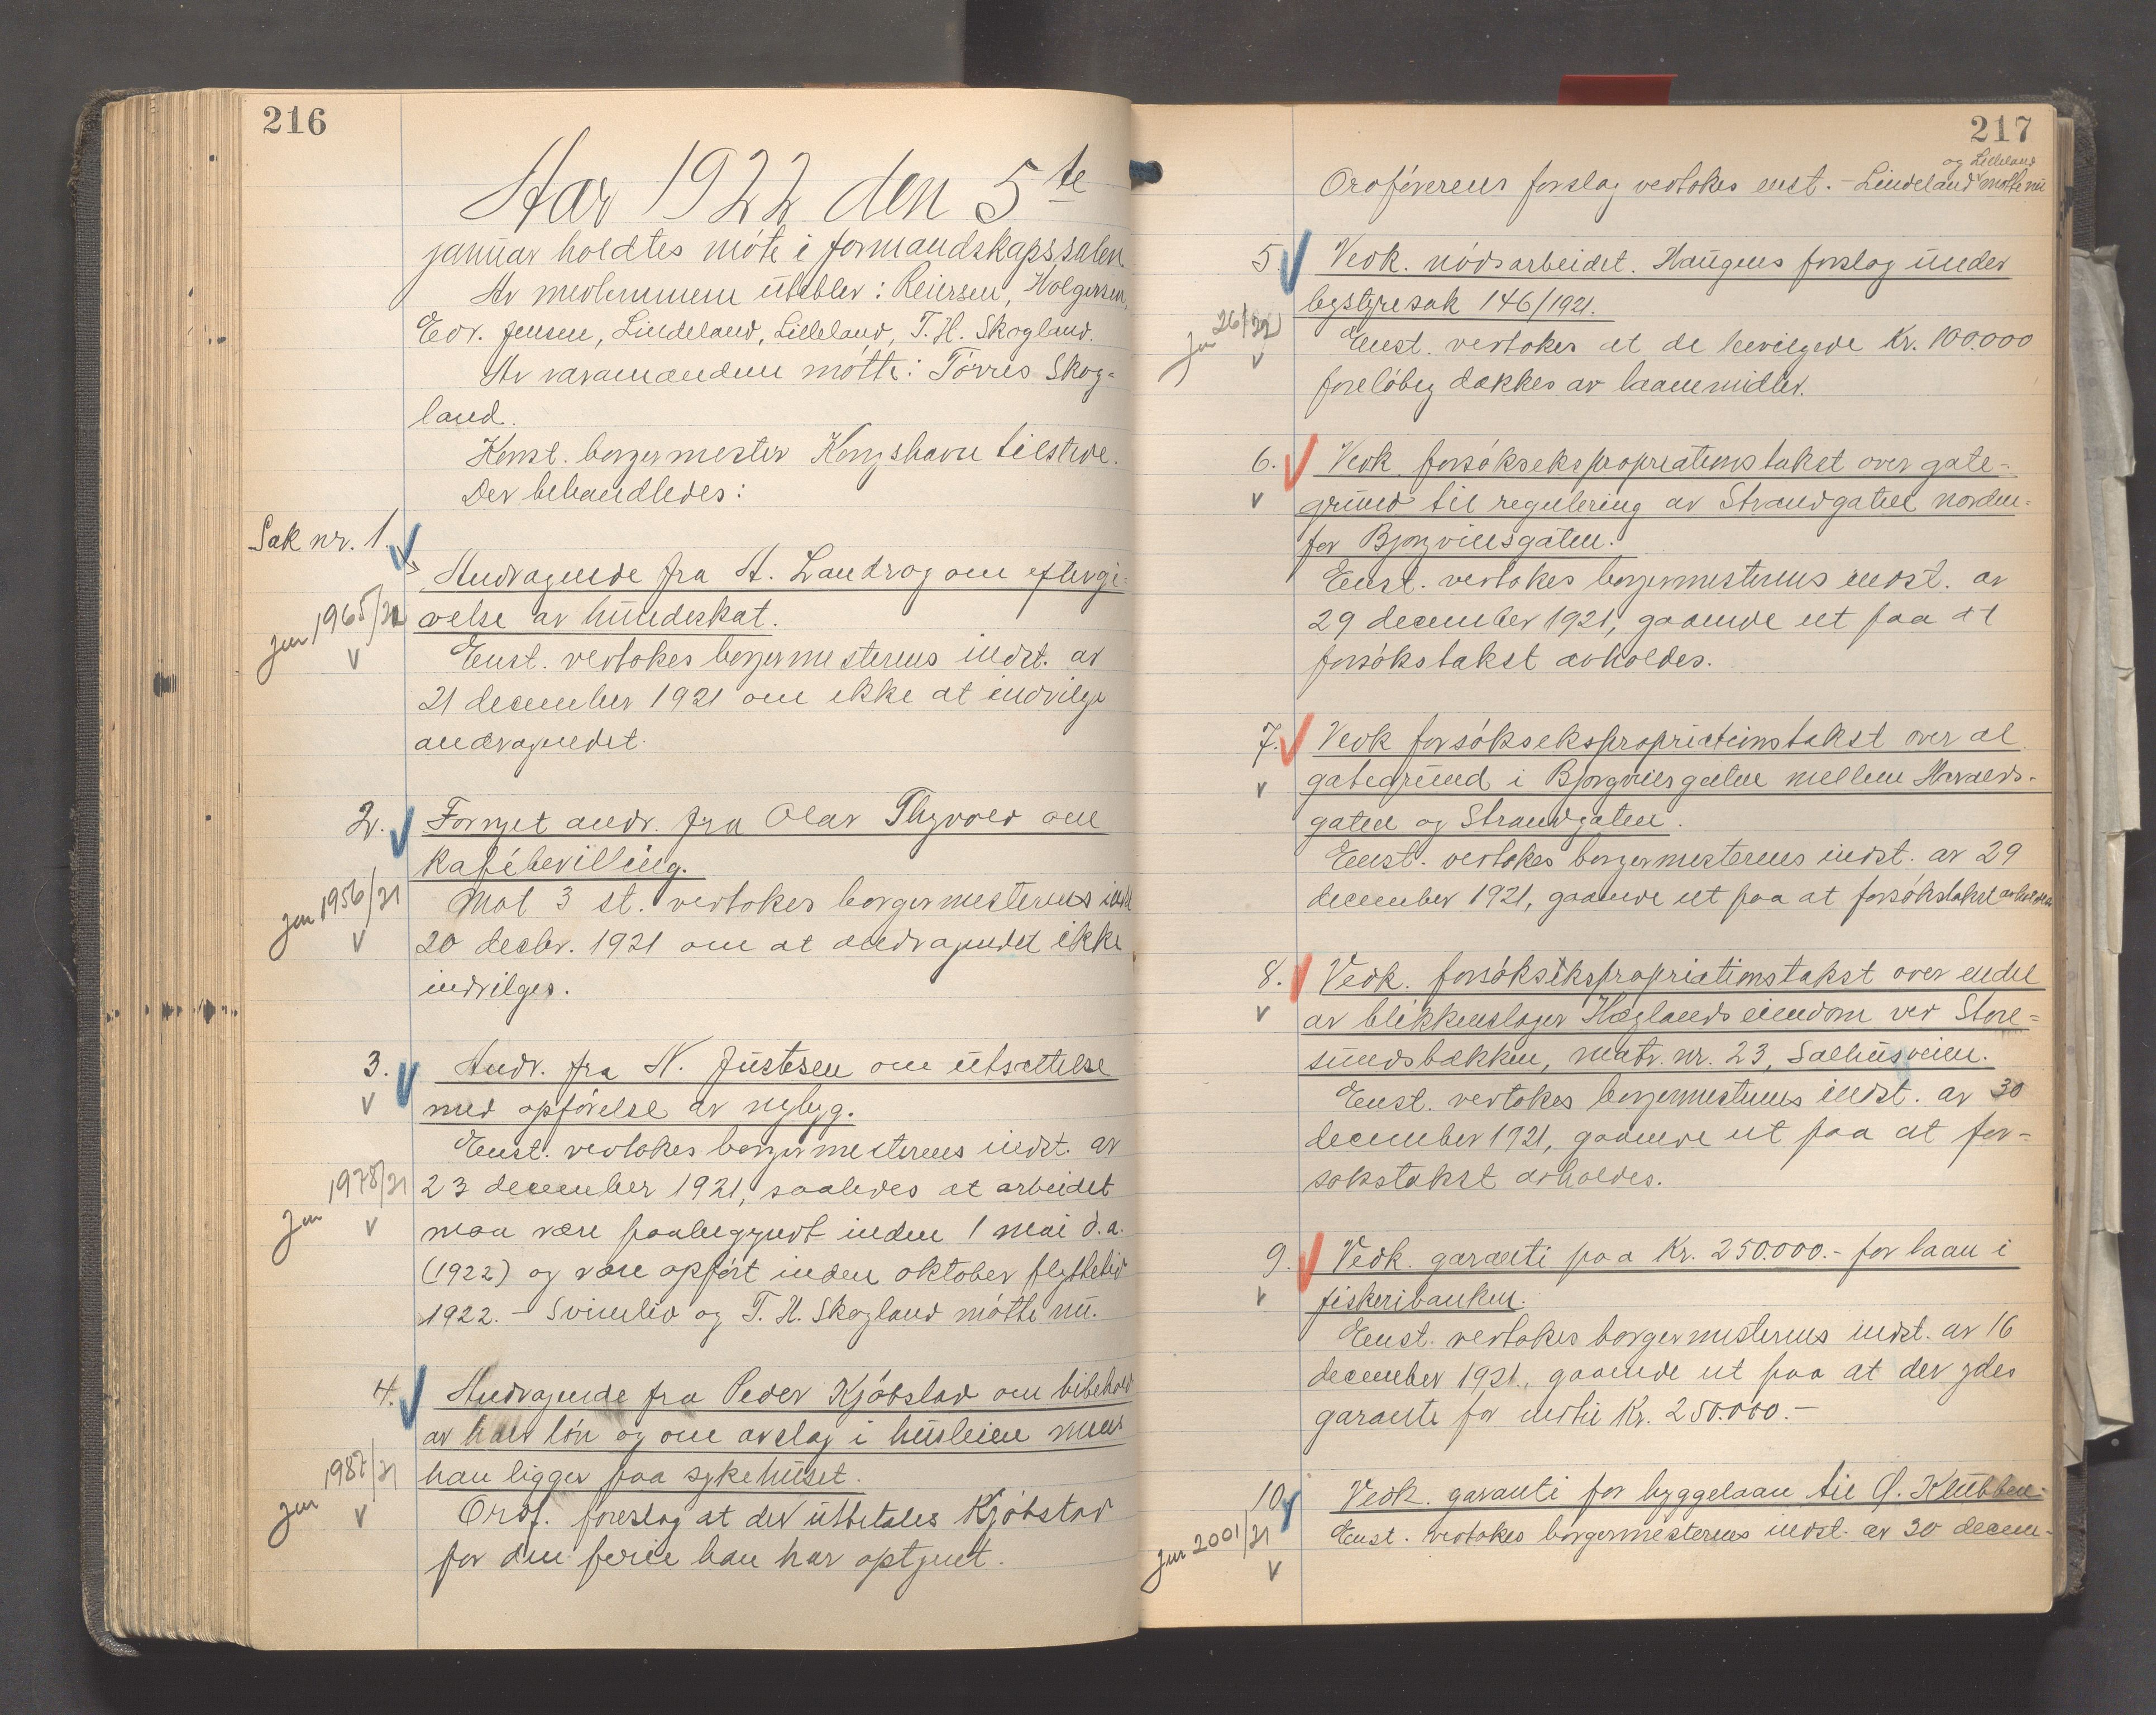 216
Aar 1922 den 5te
januar holdtes møte i formandskapssalen
Av medlemmene uteblev: Reiersen, Holgersen,
Edv. Jensen, Lindeland, Lilleland, T. H. Skogland.
Av varamændene møtte: Tørres Skog-
land.
Konst. borgermester Kongshavn tilstede.
Der behandledes:
Sak nr. 1.
Andragende fra A. Landrog om eftergi-
velse av hundeskat.
jnr 1965/21
Enst. vedtokes borgermesterens indst. av
21 december 1921 om ikke at indvilge
andragendet.
2. Fornyet andr. fra Olav Thyvold om
kafébevilling.
jnr 1956/21
Mot 3 st. vedtokes borgermesterens indst
20 decbr. 1921 om at andragendet ikke
indvilges.
3. Andr. fra N. Justesen om utsættelse
med opførelse av nybyg.
Enst. vedtokes borgermesterens indst. av
jnr 1978/21
23 december 1921, saaledes at arbeidet
maa være paabegyndt inden 1 mai d.a.
(1922) og være opført inden oktober flyttetid
1922. - Svimlid og T. H. Skogland møtte nu.
4. Andragende fra Peder Kjøbstad om bibehold
av halv løn og om avslag i husleien mens
han ligger paa sykehuset.
jnr 1987/21
Ordf. foreslog at der utbetales Kjøbstad
for den ferie han har optjent.
217
og Lilleland
Ordførerens forslag vedtokes enst. - Lindeland møtte nu
5. Vedk. nødsarbeidet. Haugens forslag under
bystyresak 146/1921.
jnr 26/22
Enst. vedtokes at de bevilgede Kr. 100.000
foreløbig dækkes av laanemidler.
6. Vedk. forsøksekspropriationstakst over gate-
grund til regulering av Strandgaten norden-
for Bjørgvinsgaten.
Enst. vedtokes borgermesterens indst. av
29 december 1921, gaaende ut paa at
forsøkstakst avholdes.
7. Vedk forsøksekspropriationstakst over al
gategrund i Bjørgvinsgaten mellem Haralds-
gaten og Strandgaten.
Enst. vedtokes borgermesterens indst. av 29
december 1921, gaaende ut paa at forsøkstakst avholdes
8. Vedk. forsøksekspropriationstakst over endel
av blikkenslager Høglands eiendom ved Store-
sundsbækken, matr. nr. 23, Salhusveien.
Enst. vedtokes borgermesterens indst. av 30
december 1921, gaaende ut paa at for-
søkstakst avholdes.
9. Vedk. garanti paa Kr. 250.000.- for laan i
fiskeribanken.
Enst. vedtokes borgermesterens indst. av 16
december 1921, gaaende ut paa at der ydes
garanti for indtil Kr. 250.000.-
10. Vedk. garanti for byggelaan til O. Klubben.
jnr 2001/21
Enst. vedtokes borgermesterens indst. av 30 decem-